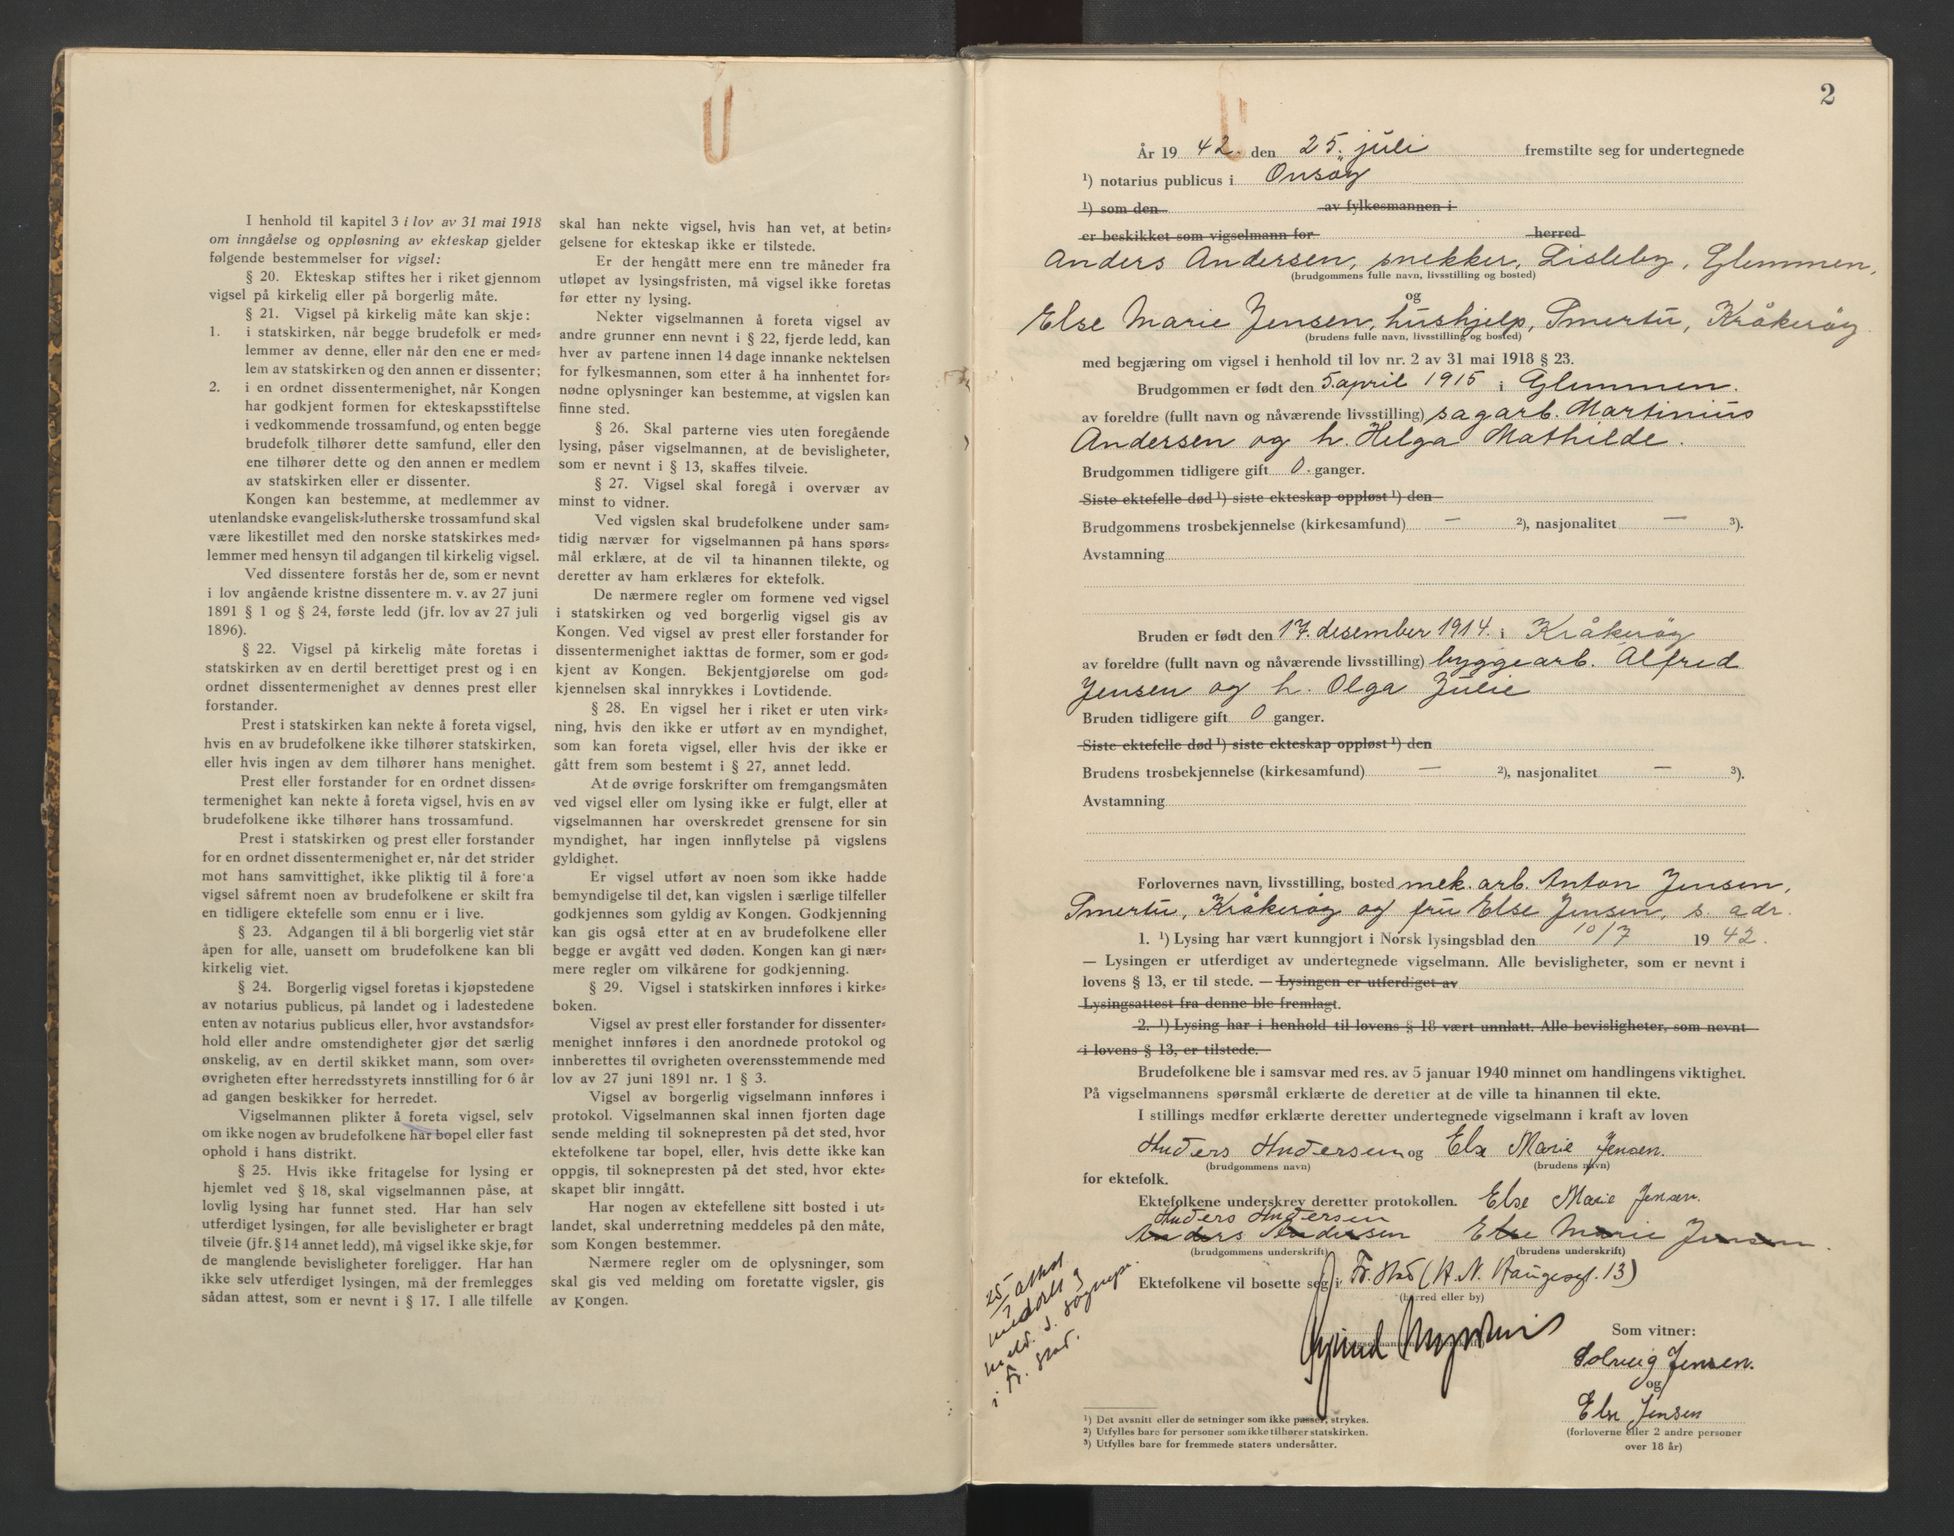 I henhold til kapitel 3 i lov av 31 mai 1918
om inngåelse og oppløsning av ekteskap gjelder
følgende bestemmelser for vigsel:
§ 20. Ekteskap stiftes her i riket gjennom
vigsel på kirkelig eller på borgerlig måte.
§ 21. Vigsel på kirkelig måte kan skje:
1. i statskirken, når begge brudefolk er med-
lemmer av denne, eller når den ene er med-
lem av statskirken og den annen er dissenter;
2. i en ordnet dissentermenighet, når Kongen
har godkjent formen for ekteskapsstiftelse
i vedkommende trossamfund, og enten begge
brudefolk tilhører dette samfund, eller den
ene tilhører dette og den annen er medlem
av statskirken eller er dissenter.
Kongen kan bestemme, at medlemmer av
utenlandske evangelisk-lutherske trossamfund skal
være likestillet med den norske statskirkes med-
lemmer med hensyn til adgangen til kirkelig vigsel.
Ved dissentere forstås her de, som er nevnt
i lov angående kristne dissentere m. v. av 27 juni
1891 § 1 og § 24, første ledd (jfr. lov av 27 juli
1896).
§ 22. Vigsel på kirkelig måte foretas i
statskirken av en dertil berettiget prest og i en
ordnet dissentermenighet av dennes prest eller
forstander.
Prest i statskirken kan nekte å foreta vigsel,
hvis en av brudefolkene ikke tilhører statskirken,
eller hvis ingen av dem tilhører hans menighet.
Prest eller forstander for en ordnet dissen-
termenighet kan nekte å foreta vigsel, hvis en av
brudefolkene ikke tilhører hans trossamfund.
Prest i statskirken og prest eller forstander
for en ordnet dissentermenighet er, når det strider
mot hans samvittighet, ikke pliktig til å foreta
vigsel såfremt noen av brudefolkene er skilt fra
en tidligere ektefelle som ennu er i live.
§ 23. Adgangen til å bli borgerlig viet står
åpen for alle, uansett om brudefolkene kan bli
kirkelig viet.
§ 24. Borgerlig vigsel foretas i kjøpstedene
av notarius publicus, på landet og i ladestedene
enten av notarius publicus eller, hvor avstandsfor-
hold eller andre omstendigheter gjør det særlig
ønskelig, av en dertil skikket mann, som over-
øvrigheten efter herredsstyrets innstilling for 6 år
ad gangen beskikker for herredet.
Vigselmannen plikter å foreta vigsel, selv
om ikke nogen av brudefolkene har bopel eller fast
ophold i hans distrikt.
§ 25. Hvis ikke fritagelse for lysing er
hjemlet ved § 18, skal vigselmannen påse, at
lovlig lysing har funnet sted. Har han selv
utferdiget lysingen, før alle bevisligheter er bragt
tilveie (jfr. § 14 annet ledd), må vigsel ikke skje, før
de manglende bevisligheter foreligger. Har han
ikke selv utferdiget lysingen, må der fremlegges
sådan attest, som er nevnt i § 17. I alle tilfelle
skal han nekte vigsel, hvis han vet, at betin-
gelsene for ekteskap ikke er tilstede.
Er der hengått mere enn tre måneder fra
utløpet av lysingsfristen, må vigsel ikke foretas
før etter ny lysing.
Nekter vigselmannen å foreta vigsel av
andre grunner enn nevnt i § 22, fjerde ledd, kan
hver av partene innen 14 dage innanke nektelsen
for fylkesmannen, som etter å ha innhentet for-
nødne oplysninger kan bestemme, at vigslen kan
finne sted.
§ 26. Skal parterne vies uten foregående
lysing, påser vigselmannen, at de bevisligheter,
som er nevnt i § 13, skaffes tilveie.
§ 27. Vigsel skal foregå i overvær av
minst to vidner.
Ved vigslen skal brudefolkene under sam-
tidig nærvær for vigselmannen på hans spørs-
mål erklære, at de vil ta hinannen tilekte, og
deretter av ham erklæres for ektefolk.
De nærmere regler om formene ved vigsel
i statskirken og ved borgerlig vigsel gis av
Kongen. Ved vigsel av prest eller forstander for
dissentermenighet iakttas de former, som er god-
kjent av Kongen. Bekjentgjørelse om god-
kjennelsen skal innrykkes i Lovtidende.
§ 28. En vigsel her i riket er uten virk-
ning, hvis den ikke er utført av en myndighet,
som kan foreta vigsel, eller hvis der ikke er
gått frem som bestemt i § 27, annet ledd.
At de øvrige forskrifter om fremgangsmåten
ved vigsel eller om lysing ikke er fulgt, eller at
vigselmannen har overskredet grensene for sin
myndighet, har ingen innflytelse på vigslens
gyldighet.
Er vigsel utført av noen som ikke hadde
bemyndigelse til det, kan vigslen i særlige tilfeller
godkjennes som gyldig av Kongen. Godkjenning
kan gis også etter at en av brudefolkene eller
begge er avgått ved døden. Kongen kan gi nær-
mere regler om vilkårene for godkjenning.
§ 29. Vigsel i statskirken innføres i kirke-
boken.
Vigsel av prest eller forstander for dissenter-
menighet innføres i den anordnede protokol og
innberettes til øvrigheten overensstemmende med
lov av 27 juni 1891 nr. 1 § 3.
Vigsel av borgerlig vigselmann innføres i
protokol. Vigselmannen skal innen fjorten dage
sende melding til soknepresten på det sted, hvor
ektefolkene tar bopel, eller, hvis dette ikke kan
oppgis, til soknepresten på det sted, hvor ekte-
skapet blir inngått.
Har nogen av ektefellene sitt bosted i ut-
landet, skal underretning meddeles på den måte,
som Kongen bestemmer.
Nærmere regler om de oplysninger, som
skal gis ved melding om foretatte vigsler, gis
av Kongen.
2
År 1942. den 25. juli fremstilte seg for undertegnede
¹) notarius publicus i Onsøy
¹) som den av fylkesmannen i
er beskikket som vigselmann for herred
Anders Andersen, snekker, Lisleby, Glemmen,
(brudgommens fulle navn, livsstilling og bosted)
og
Else Marie Jensen, hushjelp, Smertu, Kråkerøy
(brudens fulle navn, livsstilling og bosted)
med begjæring om vigsel i henhold til lov nr. 2 av 31 mai 1918 § 23.
Brudgommen er født den 5. april 1915 i Glemmen.
av foreldre (fullt navn og nåværende livsstilling) sagarb. Martinius
Andersen og h. Helga Mathilde.
Brudgommen tidligere gift 0. ganger.
Siste ektefelle død ¹) siste ekteskap oppløst ¹) den
Brudgommens trosbekjennelse (kirkesamfund) — ²), nasjonalitet — ³).
Avstamning
Bruden er født den 17. desember 1914. i Kråkerøy
av foreldre (fullt navn og nåværende livsstilling) byggearb. Alfred
Jensen og h. Olga Julie
Bruden tidligere gift 0 ganger.
Siste ektefelle død ¹) siste ekteskap oppløst ¹) den
Brudens trosbekjennelse (kirkesamfund) — ²), nasjonalitet — ³).
Avstamning
Forlovernes navn, livsstilling, bosted mek. arb. Anton Jensen,
Smertu, Kråkerøy og fru Else Jensen, s. adr.
1. ¹) Lysing har vært kunngjort i Norsk lysingsblad den 10/7 1942.
— Lysingen er utferdiget av undertegnede vigselmann. Alle bevisligheter, som er nevnt i
lovens § 13, er til stede. — Lysingen er utferdiget av
Lysingsattest fra denne ble fremlagt.
2. ¹) Lysing har i henhold til lovens § 18 vært unnlatt. Alle bevisligheter, som nevnt
i lovens § 13, er tilstede. —
Brudefolkene ble i samsvar med res. av 5 januar 1940 minnet om handlingens viktighet.
På vigselmannens spørsmål erklærte de deretter at de ville ta hinannen til ekte.
I stillings medfør erklærte deretter undertegnede vigselmann i kraft av loven
Anders Andersen og Else Marie Jensen.
(brudgommens navn) (brudens navn)
for ektefolk.
Ektefolkene underskrev deretter protokollen. Else Marie Jensen.
Anders Andersen
Anders Andersen Else Marie Jensen.
(brudgommens underskrift) (brudens underskrift)
Ektefolkene vil bosette seg i Fr.stad (H. N. Haugesgt. 13)
(herred eller by)
25/7 attest
meddelt og
meld. s. sognepr.
i Fr. stad.
Som vitner:
Solveig Jensen.
og
Else Jensen
(forloverne eller 2 andre personer
over 18 år)
¹) Det avsnitt eller de setninger som ikke passer, strykes.
²) Utfylles bare for personer som ikke tilhører statskirken.
³) Utfylles bare for fremmede staters undersåtter.